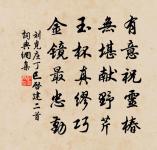 有意祝靈椿
無堪献野芹
玉杯真繆巧
金镜最忠勤
刘克庄丁巳启建二首
詞典網集